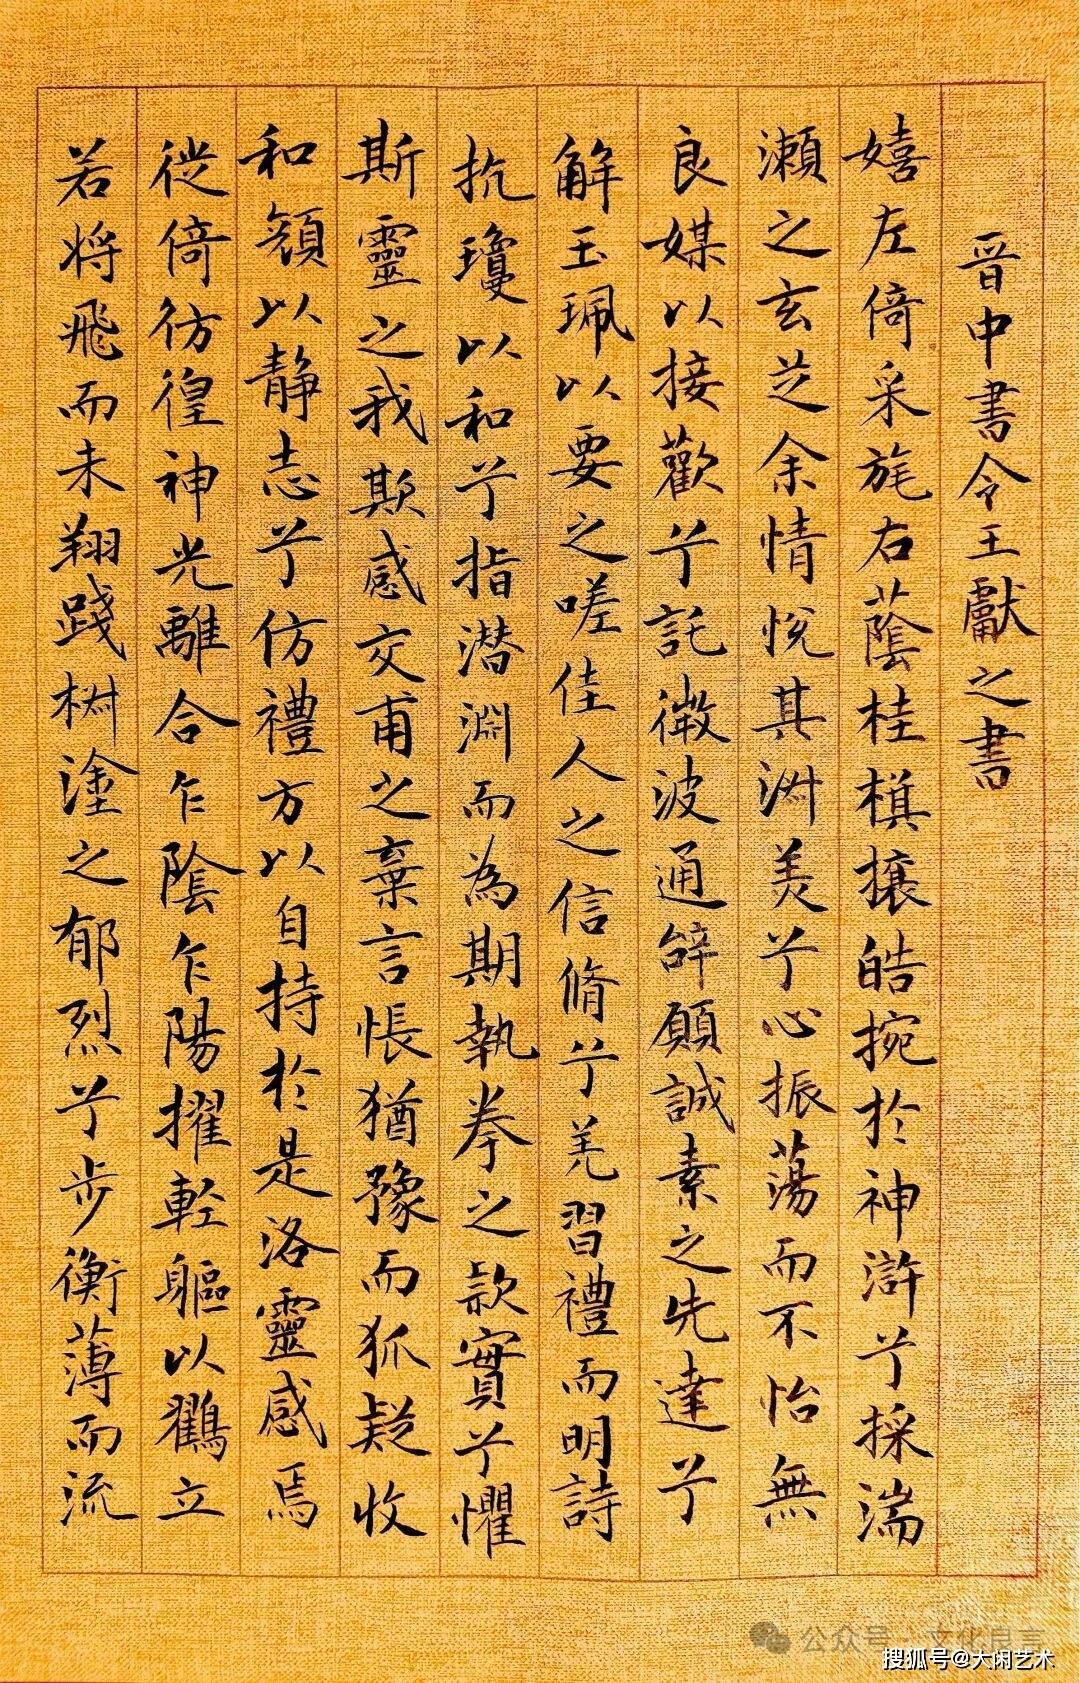 晋中書令王獻之書
嬉左倚采旄右蔭桂棋攘皓捥於神滸兮採湍
瀬之玄芝余情悅其淋美兮心振蕩而不怡無
良媒以接歡兮託微波通辞願誠素之先達兮
解玉珮以要之嗟佳人之信脩兮羌習禮而明詩
抗瓊以和兮指潜淵而為期執拳之款實兮懼
斯靈之我欺感交甫之棄言悵猶豫而狐疑收
和顏以静志兮仿禮方以自持於是洛靈感焉
徙倚彷徨神光離合乍陰乍陽擢輕軀以鶴立
若将飛而未翔踐椒塗之郁烈兮步衡薄而流
公众号·文化良言
搜狐号@大闲艺术